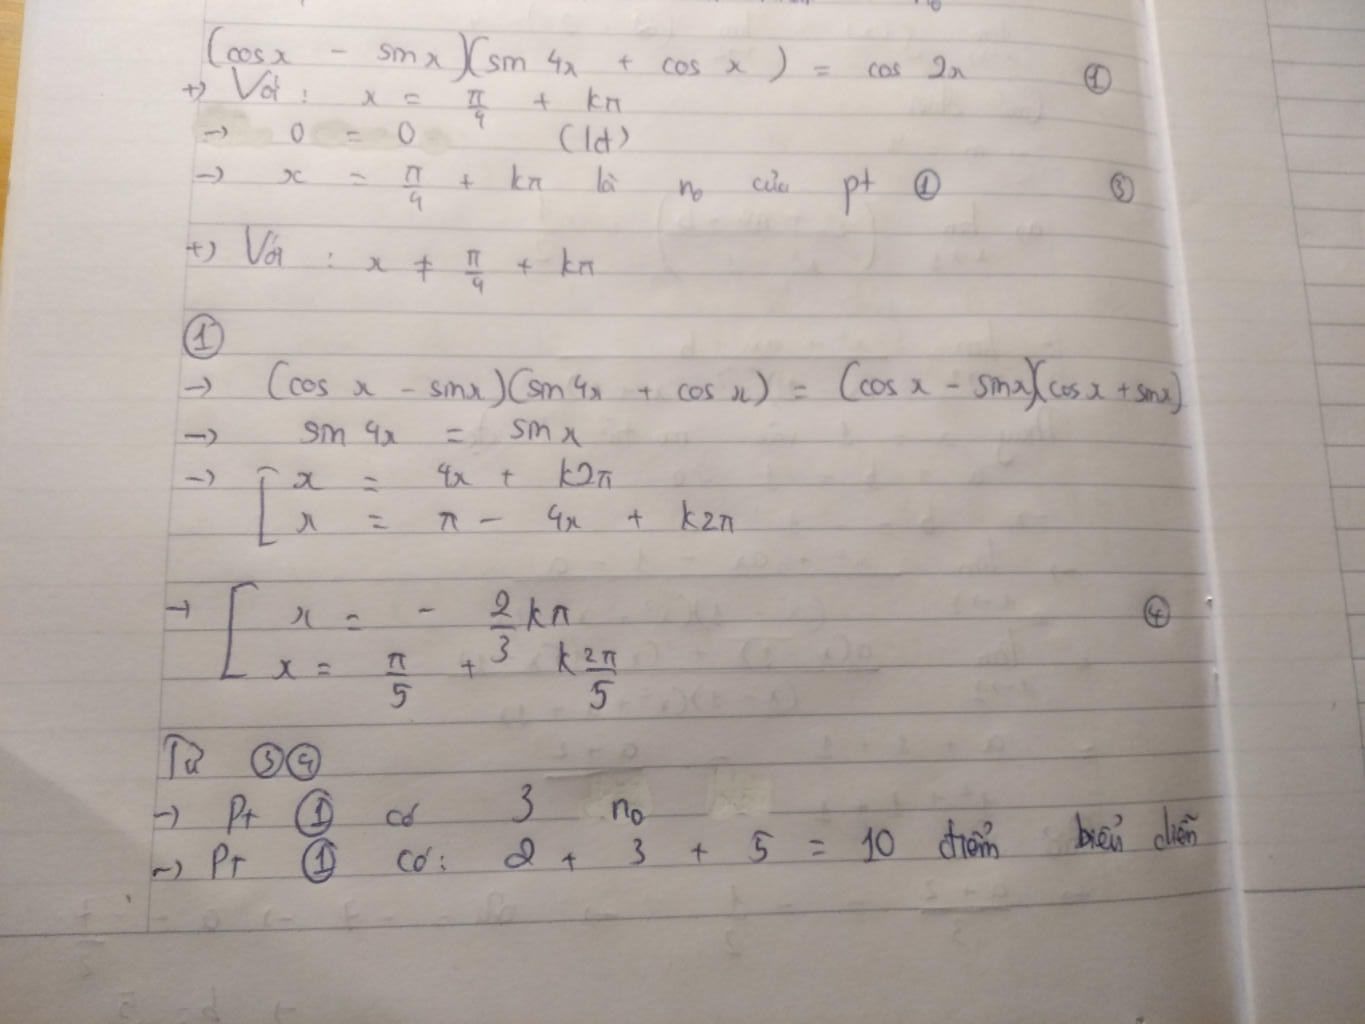 (cos x - sin x)(sin 4x + cos x) = cos 2x ①
+) Với : x = π/4 + kπ
→ 0 = 0 (lđ)
→ x = π/4 + kπ là n₀ của pt ① ③
+) Với : x ≠ π/4 + kπ
①
→ (cos x - sin x)(sin 4x + cos x) = (cos x - sin x)(cos x + sin x)
→ sin 4x = sin x
→ [ x = 4x + k2π
x = π - 4x + k2π
→ [ x = - 2/3 kπ ④
x = π/5 + k 2π/5
Từ ③④
→ Pt ① có 3 n₀
→ Pt ① có: 2 + 3 + 5 = 10 điểm biểu diễn